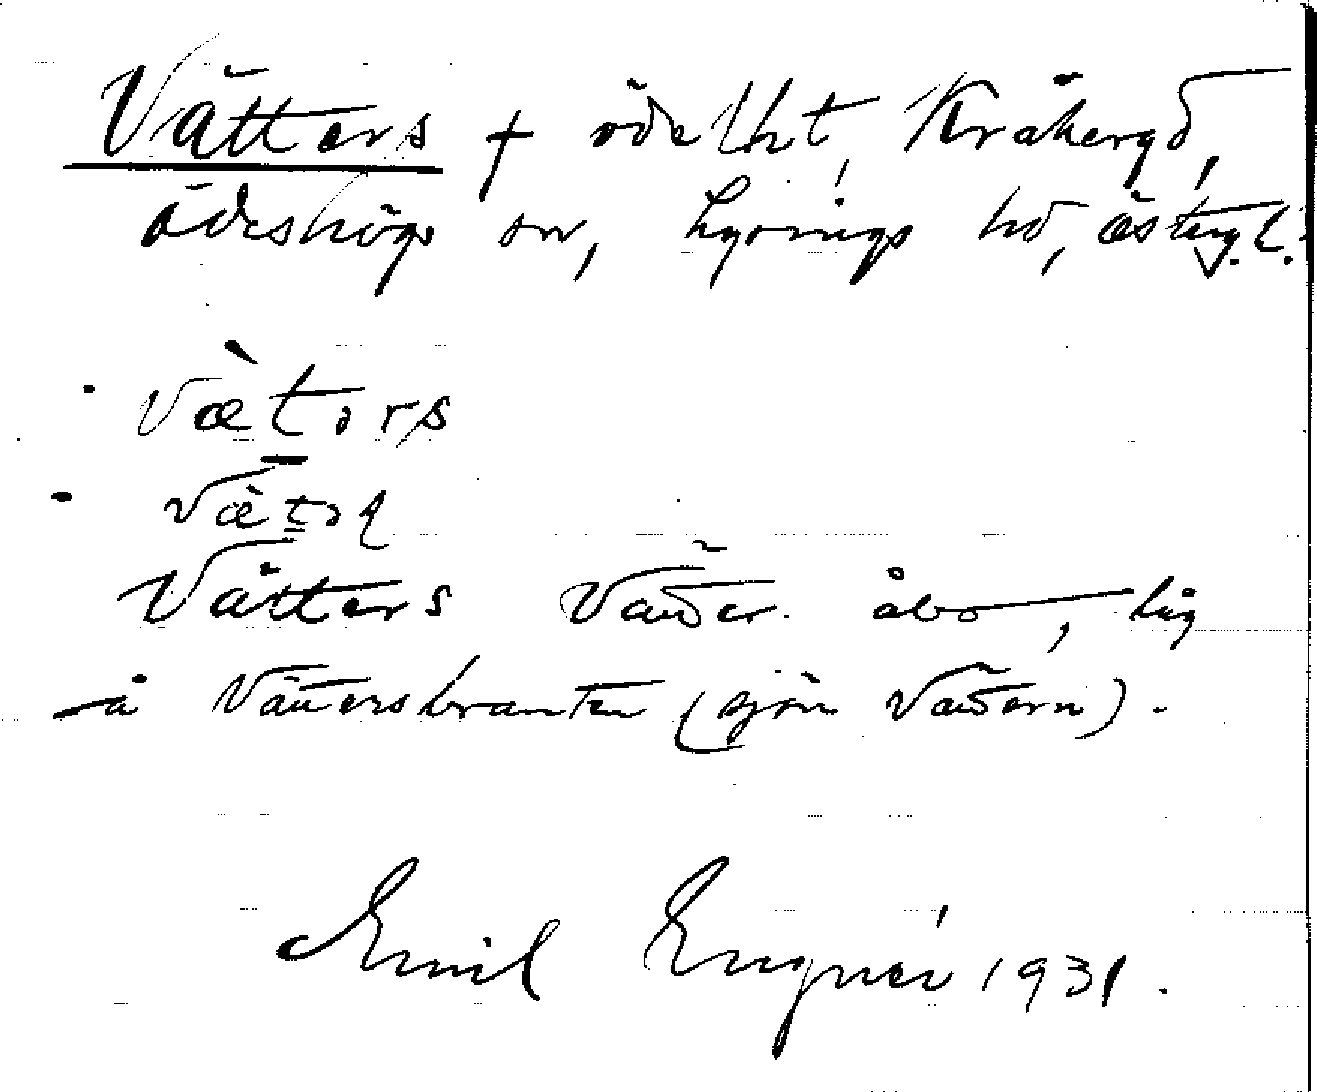 Vätters † ödelht, Kråkergd,
Ödeshögs sn, Lysings hd, Östergl.
· væ̀tərs
· væ̀təɭ
Vätters Vätter. åbo, låg
å Vätterbranten (sjön Vättern).
Emil Engnér 1931.